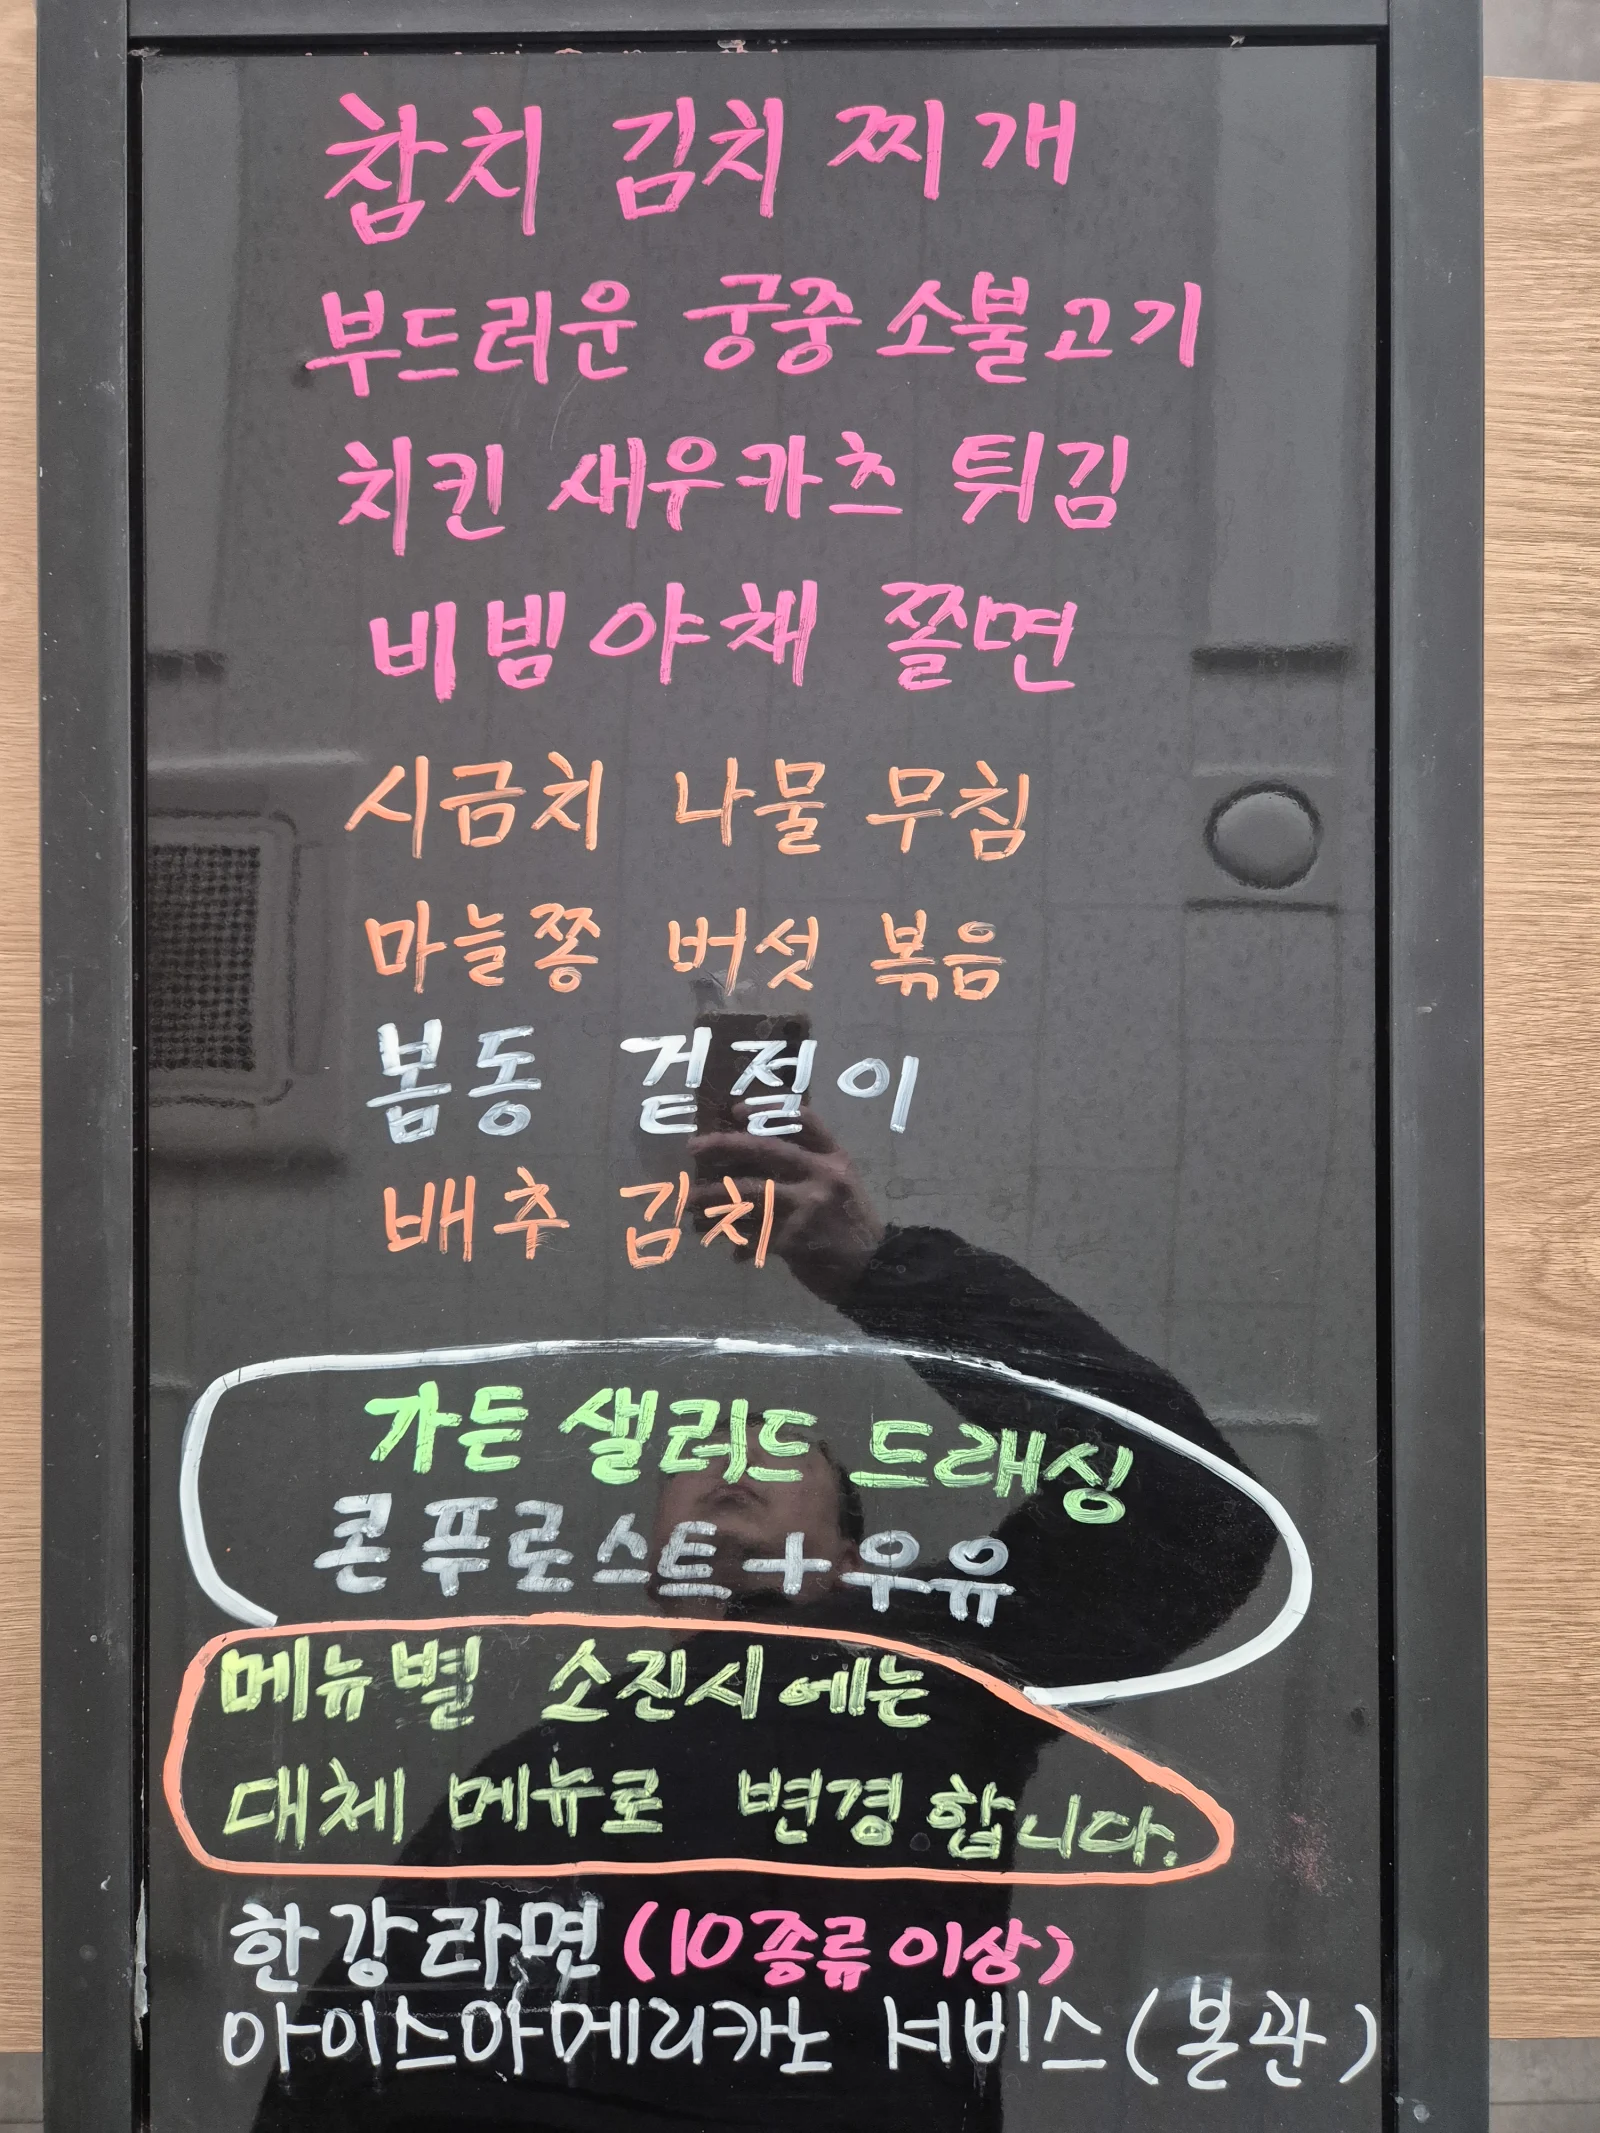 참치 김치 찌개
부드러운 궁중 소불고기
치킨 새우카츠 튀김
비빔야채 쫄면
시금치 나물 무침
마늘쫑 버섯 볶음
봄동 겉절이
배추 김치
가든 샐러드 드래싱
콘푸로스트+우유
메뉴별 소진시에는
대체 메뉴로 변경합니다.
한강라면(10종류이상)
아이스아메리카노 서비스(본관)